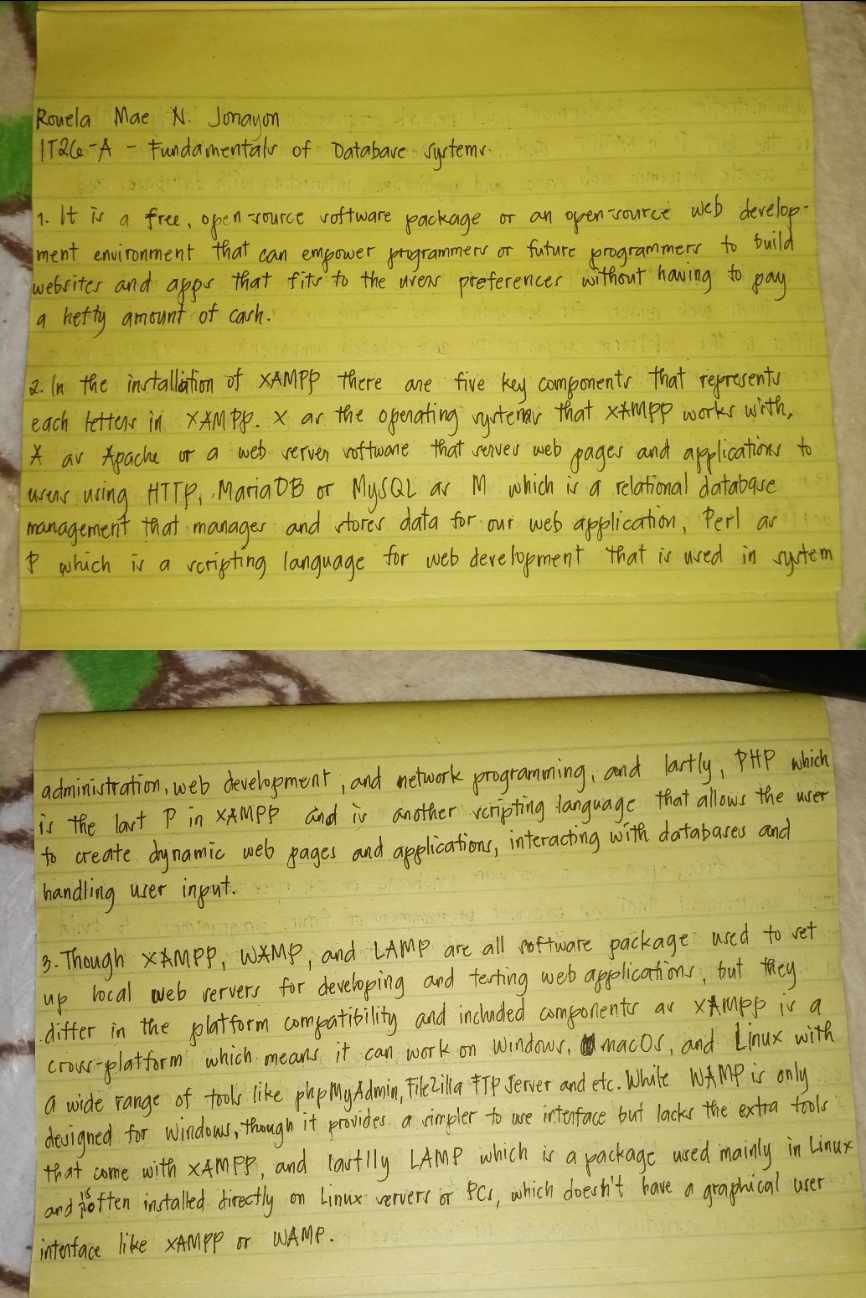 Rouela Mae N. Jonayon
IT26-A - Fundamentals of Database Systems
1. It is a free, open-source software package or an open-source web develop-
ment environment that can empower programmers or future programmers to build
websites and apps that fits to the users preferences without having to pay
a hefty amount of cash.
2. In the installation of XAMPP there are five key components that represents
each letters in XAMPP. X as the operating systems that XAMPP works with,
A as Apache or a web server software that serves web pages and applications to
users using HTTP, MariaDB or MySQL as M which is a relational database
management that manages and stores data for our web application, Perl as
P which is a scripting language for web development that is used in system
administration, web development, and network programming, and lastly, PHP which
is the last P in XAMPP and is another scripting language that allows the user
to create dynamic web pages and applications, interacting with databases and
handling user input.
3. Though XAMPP, WAMP, and LAMP are all software package used to set
up local web servers for developing and testing web applications, but they
differ in the platform compatibility and included components as XAMPP is a
cross-platform which means it can work on Windows, macOS, and Linux with
a wide range of tools like phpMyAdmin, FileZilla FTP Server and etc. While WAMP is only
designed for Windows, though it provides a simpler to use interface but lacks the extra tools
that come with XAMPP, and lastlly LAMP which is a package used mainly in Linux
and is often installed directly on Linux servers or PCs, which doesn't have a graphical user
interface like XAMPP or WAMP.